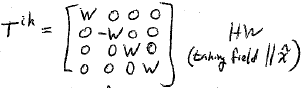 T^{ik} = [ W 0 0 0
0 -W 0 0
0 0 W 0
0 0 0 W ]
HW
(taking field // x̂)